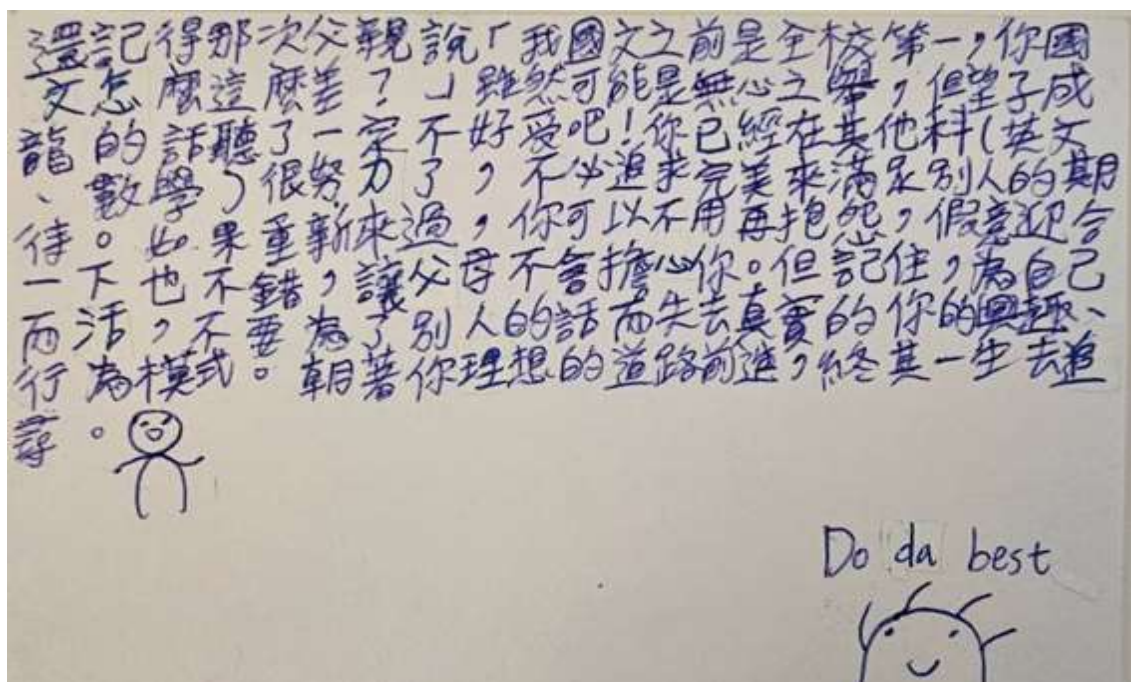 還記得那次父親說「我國文之前是全校第一,你國
文怎麼這麼差?」雖然可能是無心之舉,但望子成
龍的話聽了一定不好受吧!你已經在其他科(英文
、數學)很努力了,不必追求完美來滿足別人的期
待。如果重新來過,你可以不用再抱怨,假意迎合
一下也不錯,讓父母不會擔心你。但記住,為自己
而活,不要為了別人的話而失去真實的你的興趣、
行為模式。朝著你理想的道路前進,終其一生去追
尋。
Do da best